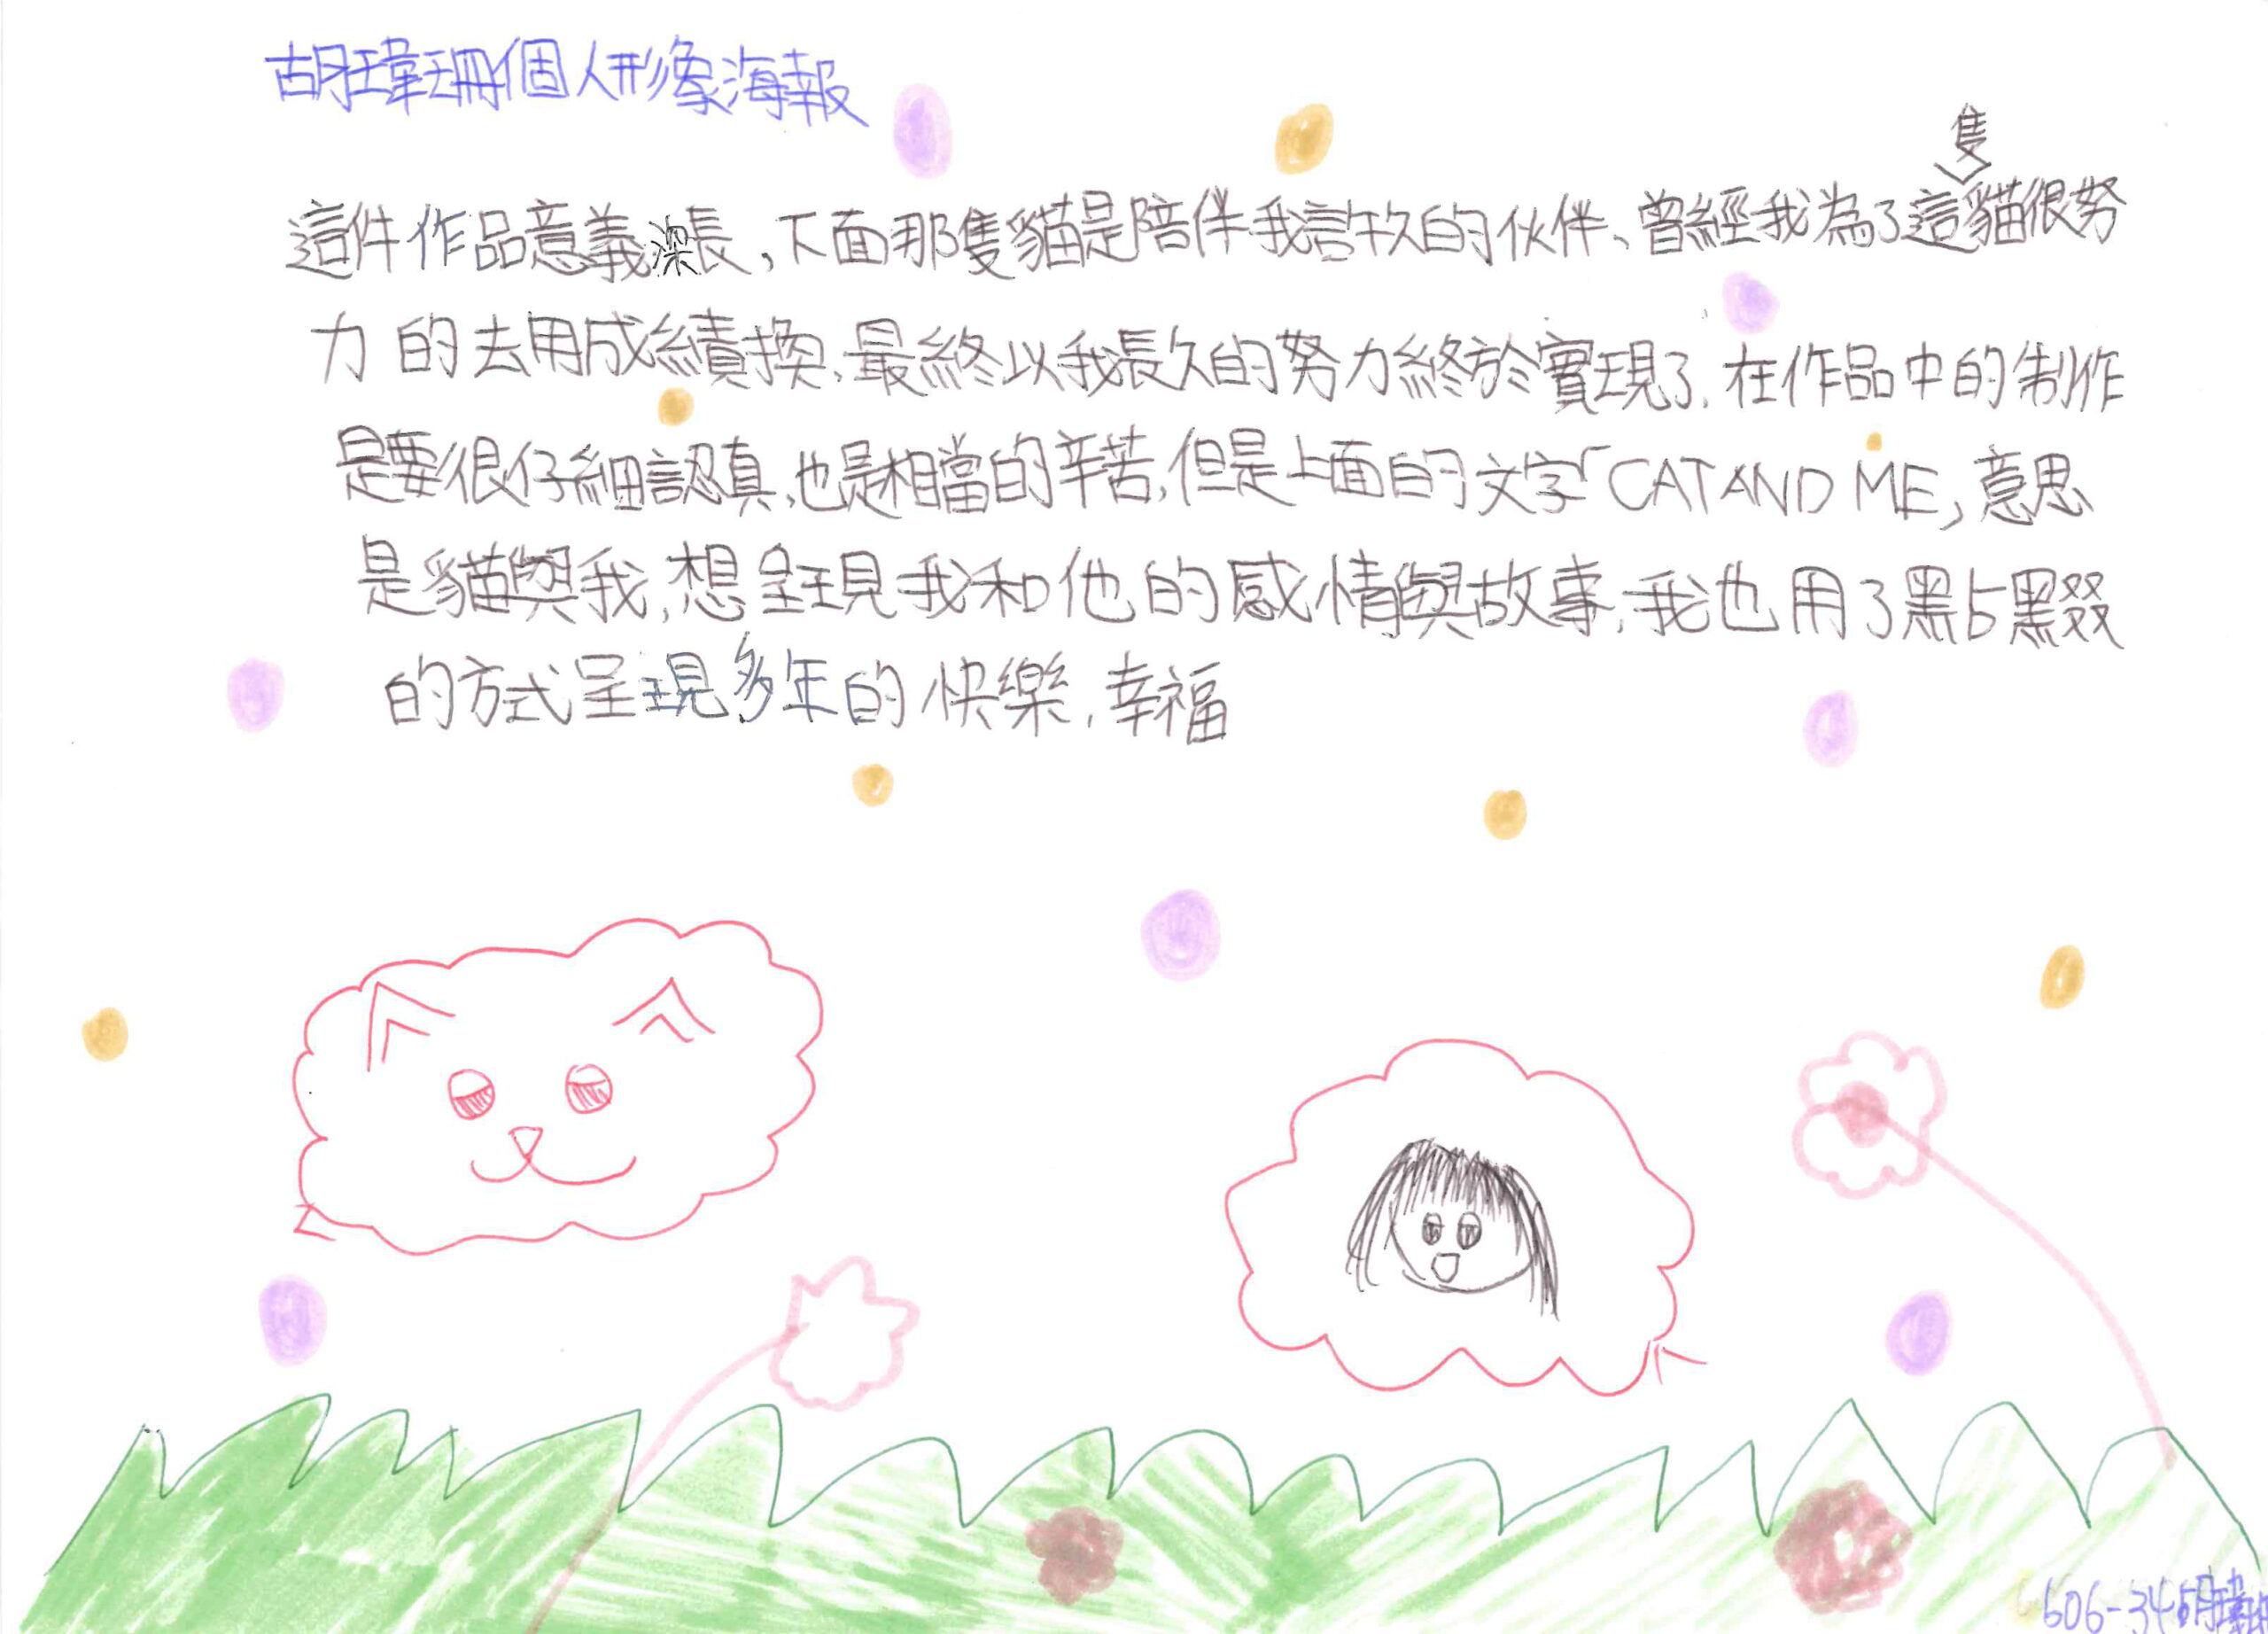 胡瑋珊個人形象海報
這件作品意義深長,下面那隻貓是陪伴我許久的伙伴、曾經我為了這隻貓很努
力的去用成績換,最終以我長久的努力終於實現了,在作品中的制作
是要很仔細認真,也是相當的辛苦,但是上面的文字「CAT AND ME」意思
是貓與我,想呈現我和他的感情與故事,我也用了點點綴
的方式呈現多年的快樂,幸福
606-34胡瑋珊